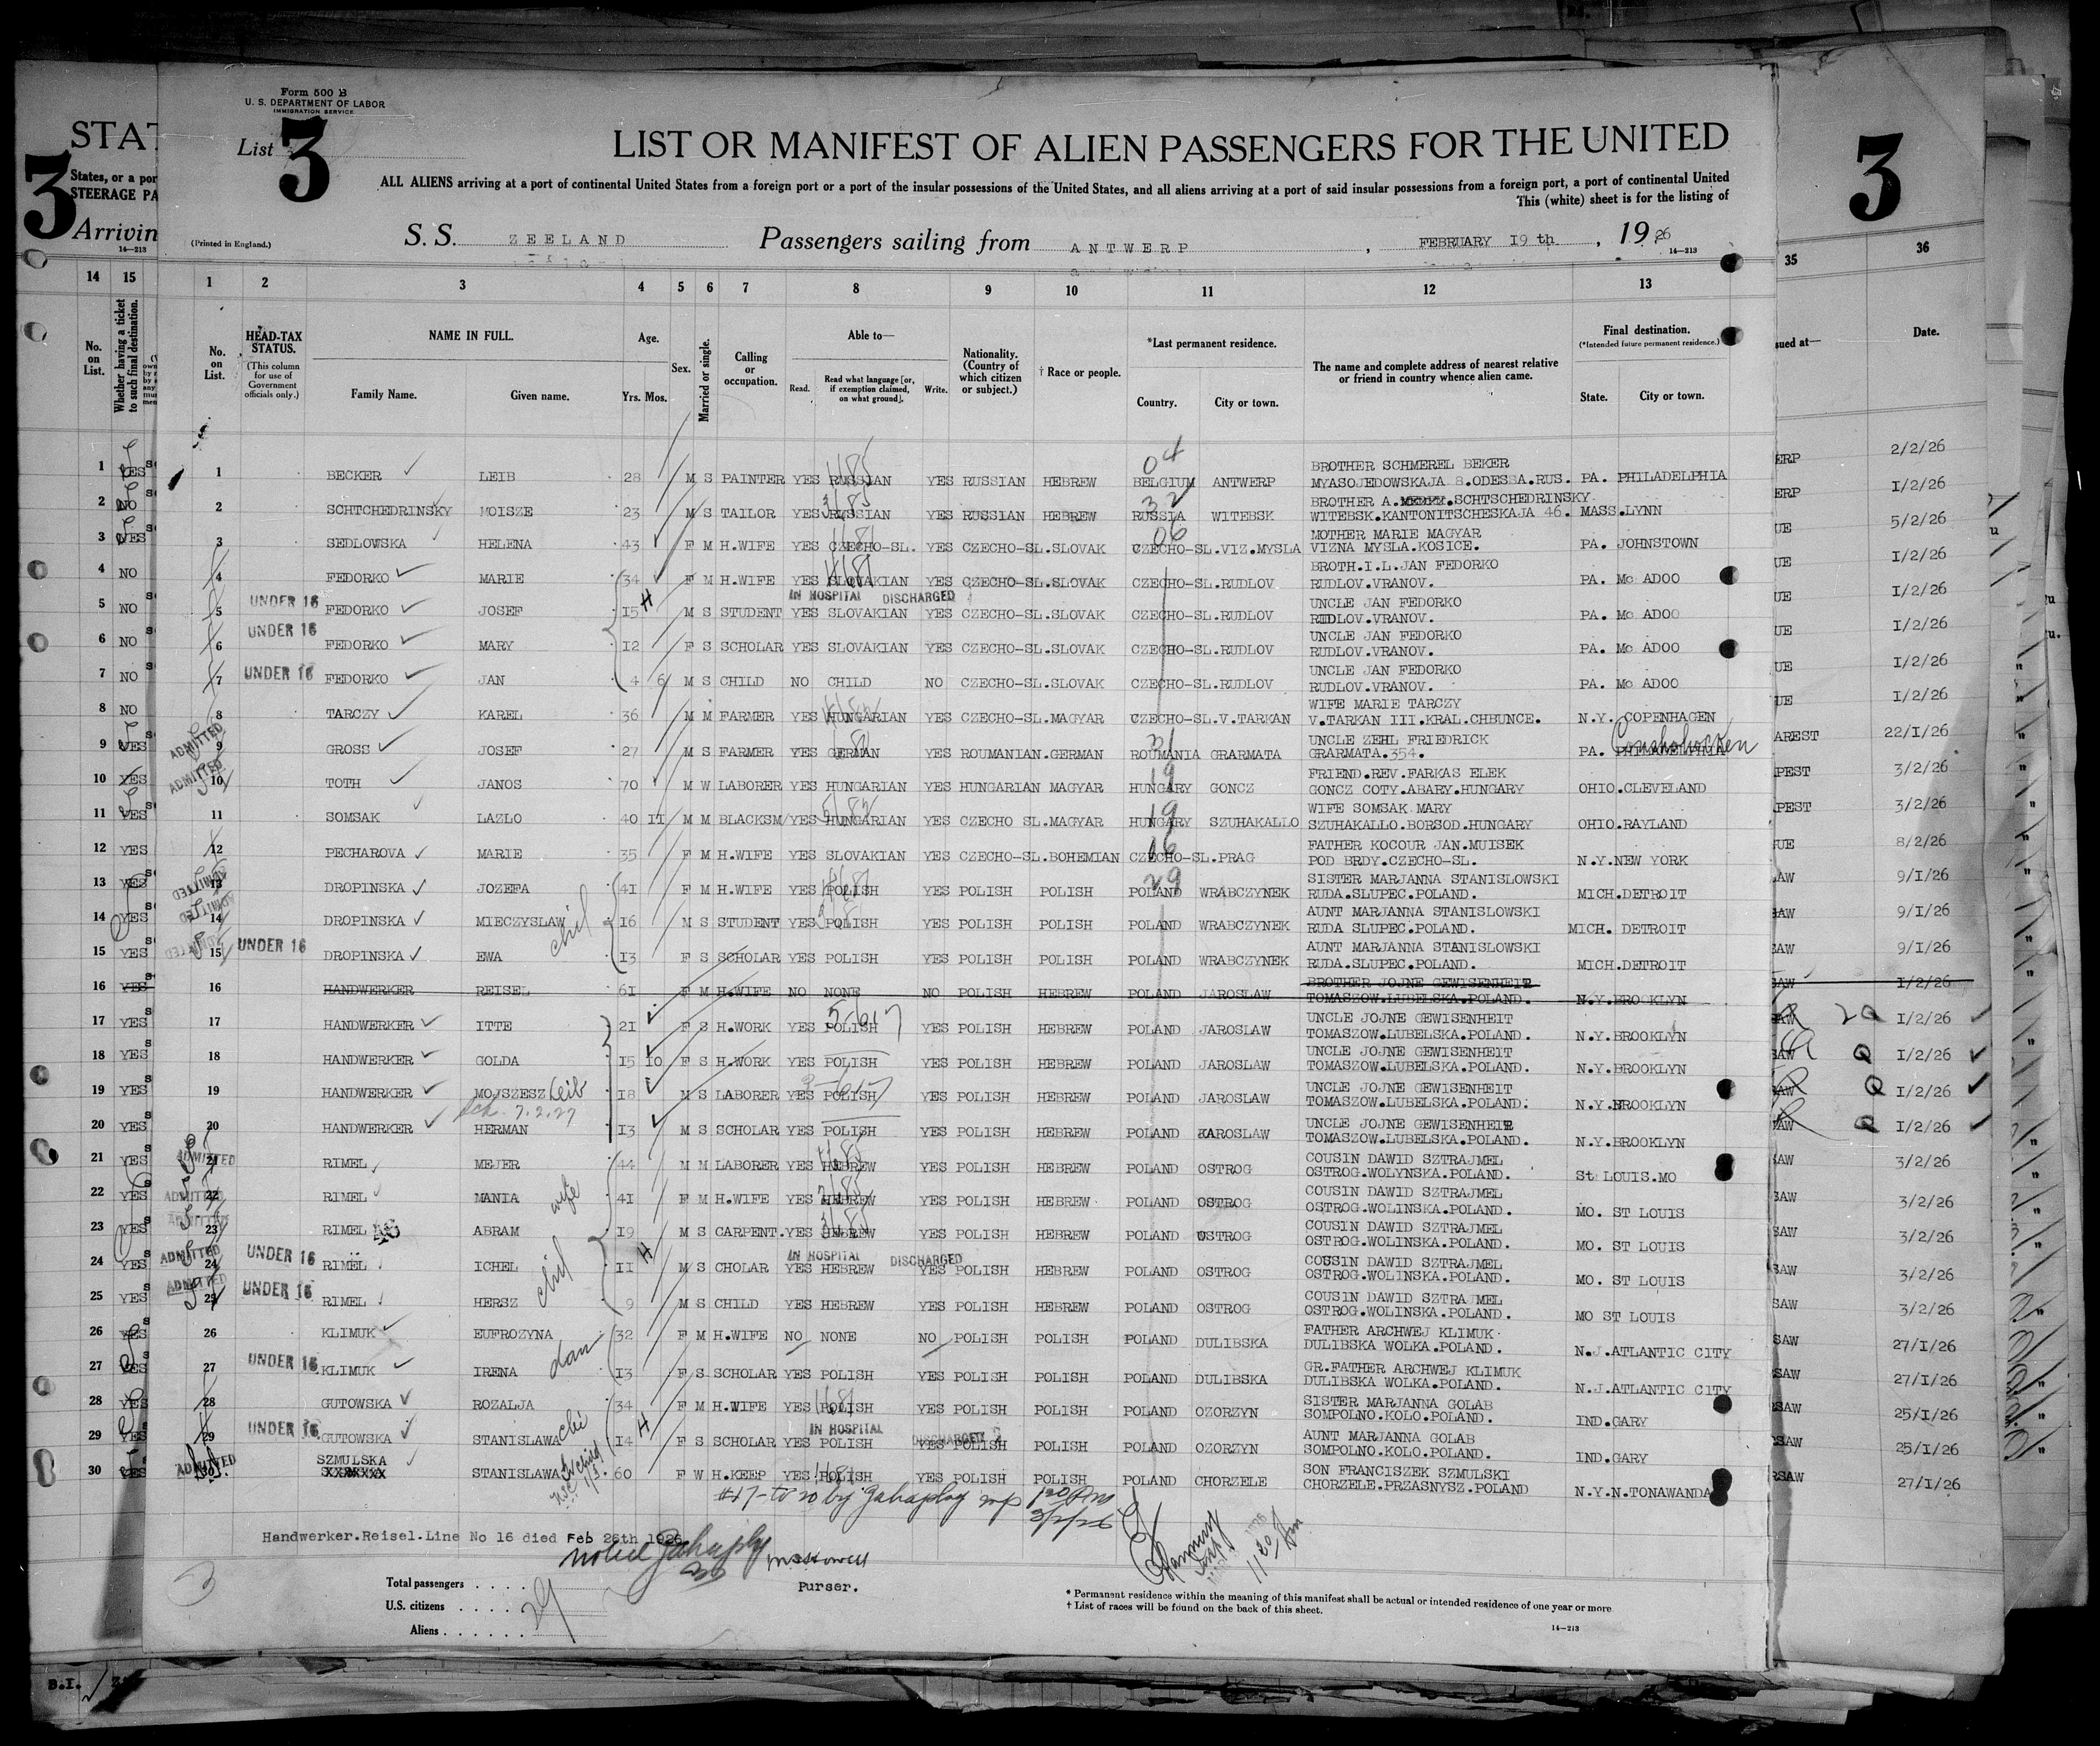 Form 500 B
U. S. DEPARTMENT OF LABOR
IMMIGRATION SERVICE
List 3
LIST OR MANIFEST OF ALIEN PASSENGERS FOR THE UNITED
ALL ALIENS arriving at a port of continental United States from a foreign port or a port of the insular possessions of the United States, and all aliens arriving at a port of said insular possessions from a foreign port, a port of continental United
This (white) sheet is for the listing of
(Printed in England.)
S. S. ZEELAND Passengers sailing from ANTWERP , FEBRUARY 19 th , 19 26
14—213
1 2 3 4 5 6 7 8 9 10 11 12 13
No. on List.
HEAD-TAX STATUS.
(This column for use of Government officials only.)
NAME IN FULL.
Family Name. Given name.
Age.
Yrs. Mos.
Sex.
Married or single.
Calling or occupation.
Able to—
Read. Read what language [or, if exemption claimed, on what ground]. Write.
Nationality. (Country of which citizen or subject.)
† Race or people.
*Last permanent residence.
Country. City or town.
The name and complete address of nearest relative or friend in country whence alien came.
Final destination.
(*Intended future permanent residence.)
State. City or town.
1 BECKER LEIB 28 M S PAINTER YES RUSSIAN YES RUSSIAN HEBREW BELGIUM ANTWERP BROTHER SCHMEREL BEKER MYASOJEDOWSKAJA 8.ODESSA.RUS. PA. PHILADELPHIA
2 SCHTCHEDRINSKY MOISZE 23 M S TAILOR YES RUSSIAN YES RUSSIAN HEBREW RUSSIA WITEBSK BROTHER A. SCHTSCHEDRINSKY WITEBSK.KANTONITSCHESKAJA 46. MASS.LYNN
3 SEDLOWSKA HELENA 43 F M H.WIFE YES CZECHO-SL. YES CZECHO-SL.SLOVAK CZECHO-SL.VIZ.MYSLA MOTHER MARIE MAGYAR VIZNA MYSLA.KOSICE. PA. JOHNSTOWN
4 FEDORKO MARIE 34 F M H.WIFE YES SLOVAKIAN YES CZECHO-SL.SLOVAK CZECHO-SL.RUDLOV BROTH.I.L.JAN FEDORKO RUDLOV.VRANOV. PA. Mc ADOO
IN HOSPITAL DISCHARGED
5 UNDER 16 FEDORKO JOSEF 15 H M S STUDENT YES SLOVAKIAN YES CZECHO-SL.SLOVAK CZECHO-SL.RUDLOV UNCLE JAN FEDORKO RUDLOV.VRANOV. PA. Mc ADOO
6 UNDER 16 FEDORKO MARY 12 F S SCHOLAR YES SLOVAKIAN YES CZECHO-SL.SLOVAK CZECHO-SL.RUDLOV UNCLE JAN FEDORKO RUDLOV.VRANOV. PA. Mc ADOO
7 UNDER 16 FEDORKO JAN 4 6 M S CHILD NO CHILD NO CZECHO-SL.SLOVAK CZECHO-SL.RUDLOV UNCLE JAN FEDORKO RUDLOV.VRANOV. PA. Mc ADOO
8 TARCZY KAREL 36 M M FARMER YES HUNGARIAN YES CZECHO-SL.MAGYAR CZECHO-SL.V.TARKAN WIFE MARIE TARCZY V.TARKAN III.KRAL.CHBUNCE. N.Y. COPENHAGEN
9 ADMITTED GROSS JOSEF 27 M S FARMER YES GERMAN YES ROUMANIAN.GERMAN ROUMANIA GRARMATA UNCLE ZEHL FRIEDRICK GRARMATA.354. PA. PHILADELPHIA Conshohocken
10 ADMITTED TOTH JANOS 70 M W LABORER YES HUNGARIAN YES HUNGARIAN MAGYAR HUNGARY GONCZ FRIEND.REV.FARKAS ELEK GONCZ COTY.ABARY.HUNGARY OHIO.CLEVELAND
11 SOMSAK LAZLO 40 11 M M BLACKSM YES HUNGARIAN YES CZECHO SL.MAGYAR HUNGARY SZUHAKALLO WIFE SOMSAK MARY SZUHAKALLO.BORSOD.HUNGARY OHIO.RAYLAND
12 PECHAROVA MARIE 35 F M H.WIFE YES SLOVAKIAN YES CZECHO-SL.BOHEMIAN CZECHO-SL.PRAG FATHER KOCOUR JAN.MUISEK POD BRDY.CZECHO-SL. N.Y.NEW YORK
13 ADMITTED DROPINSKA JOZEFA 41 F M H.WIFE YES POLISH YES POLISH POLISH POLAND WRABCZYNEK SISTER MARJANNA STANISLOWSKI RUDA.SLUPEC.POLAND. MICH.DETROIT
14 ADMITTED DROPINSKA MIECZYSLAW 16 M S STUDENT YES POLISH YES POLISH POLISH POLAND WRABCZYNEK AUNT MARJANNA STANISLOWSKI RUDA SLUPEC.POLAND. MICH. DETROIT
15 ADMITTED UNDER 16 DROPINSKA EWA 13 F S SCHOLAR YES POLISH YES POLISH POLISH POLAND WRABCZYNEK AUNT MARJANNA STANISLOWSKI RUDA.SLUPEC.POLAND. MICH.DETROIT
16 HANDWERKER REISEL 61 F M H.WIFE NO NONE NO POLISH HEBREW POLAND JAROSLAW BROTHER JOJNE GEWISENHEIT TOMASZOW.LUBELSKA.POLAND. N.Y.BROOKLYN
17 HANDWERKER ITTE 21 F S H.WORK YES POLISH YES POLISH HEBREW POLAND JAROSLAW UNCLE JOJNE GEWISENHEIT TOMASZOW.LUBELSKA.POLAND. N.Y.BROOKLYN
18 HANDWERKER GOLDA 15 10 F S H.WORK YES POLISH YES POLISH HEBREW POLAND JAROSLAW UNCLE JOJNE GEWISENHEIT TOMASZOW.LUBELSKA.POLAND. N.Y.BROOKLYN
19 HANDWERKER MOJSZESZ Leib 18 M S LABORER YES POLISH YES POLISH HEBREW POLAND JAROSLAW UNCLE JOJNE GEWISENHEIT TOMASZOW.LUBELSKA.POLAND. N.Y.BROOKLYN
20 HANDWERKER HERMAN 13 M S SCHOLAR YES POLISH YES POLISH HEBREW POLAND JAROSLAW UNCLE JOJNE GEWISENHEIT TOMASZOW.LUBELSKA.POLAND. N.Y.BROOKLYN
21 ADMITTED RIMEL MEJER 44 M M LABORER YES HEBREW YES POLISH HEBREW POLAND OSTROG COUSIN DAWID SZTRAJMEL OSTROG.WOLYNSKA.POLAND. St LOUIS.MO
22 ADMITTED RIMEL MANIA wife 41 F M H.WIFE YES HEBREW YES POLISH HEBREW POLAND OSTROG COUSIN DAWID SZTRAJMEL OSTROG.WOLINSKA.POLAND. MO. ST LOUIS
23 ADMITTED RIMEL ABRAM 19 M S CARPENT. YES HEBREW YES POLISH HEBREW POLAND OSTROG COUSIN DAWID SZTRAJMEL OSTROG.WOLINSKA.POLAND. MO. ST LOUIS
IN HOSPITAL DISCHARGED
24 ADMITTED UNDER 16 RIMEL ICHEL 11 H M S CHOLAR YES HEBREW YES POLISH HEBREW POLAND OSTROG COUSIN DAWID SZTRAJMEL OSTROG.WOLINSKA.POLAND. MO. ST LOUIS
25 ADMITTED UNDER 16 RIMEL HERSZ 9 M S CHILD YES HEBREW YES POLISH HEBREW POLAND OSTROG COUSIN DAWID SZTRAJMEL OSTROG.WOLINSKA.POLAND. MO ST LOUIS
26 KLIMUK EUFROZYNA 32 F M H.WIFE NO NONE NO POLISH POLISH POLAND DULIBSKA FATHER ARCHWEJ KLIMUK DULIBSKA WOLKA.POLAND. N.J.ATLANTIC CITY
27 UNDER 16 KLIMUK IRENA 13 F S SCHOLAR YES POLISH YES POLISH POLISH POLAND DULIBSKA GR.FATHER ARCHWEJ KLIMUK DULIBSKA WOLKA.POLAND. N.J.ATLANTIC CITY
28 GUTOWSKA ROZALJA 34 F M H.WIFE YES POLISH YES POLISH POLISH POLAND OZORZYN SISTER MARJANNA GOLAB SOMPOLNO.KOLO.POLAND. IND.GARY
IN HOSPITAL DISCHARGED
29 UNDER 16 GUTOWSKA STANISLAWA 14 H F S SCHOLAR YES POLISH YES POLISH POLISH POLAND OZORZYN AUNT MARJANNA GOLAB SOMPOLNO.KOLO.POLAND. IND.GARY
30 ADMITTED SZMULSKA STANISLAWA 60 F W H.KEEP YES POLISH YES POLISH POLISH POLAND CHORZELE SON FRANCISZEK SZMULSKI CHORZELE.PRZASNYSZ.POLAND N.Y.N.TONAWANDA
Handwerker.Reisel.Line No 16 died Feb 26th 1926
Purser.
Total passengers . . . .
U.S. citizens . . . .
Aliens . . . . . .
29
* Permanent residence within the meaning of this manifest shall be actual or intended residence of one year or more
† List of races will be found on the back of this sheet.
14—213
STAT
3
States, or a por
STEERAGE PA
Arrivin
14—213
14 15
No. on List.
Whether having a ticket to such final destination.
1 YES
2 NO
3 YES
4 NO
5 NO
6 NO
7 NO
8 NO
9 YES
10 YES
11 YES
12 YES
13 YES
14 YES
15 YES
16 YES
17 YES
18 YES
19 YES
20 YES
21 YES
22 YES
23 YES
24 YES
25 YES
26 YES
27 YES
28 YES
29 YES
30 YES
B.I.
3
35 36
sued at— Date.
ERP 2/2/26
ERP 1/2/26
UE 5/2/26
UE 1/2/26
UE 1/2/26
UE 1/2/26
UE 1/2/26
UE 1/2/26
AREST 22/1/26
PEST 3/2/26
PEST 3/2/26
UE 8/2/26
AW 9/1/26
AW 9/1/26
AW 9/1/26
AW 1/2/26
AW 1/2/26
AW 1/2/26
AW 1/2/26
AW 1/2/26
AW 3/2/26
SAW 3/2/26
SAW 3/2/26
SAW 3/2/26
SAW 3/2/26
SAW 27/1/26
SAW 27/1/26
SAW 25/1/26
SAW 25/1/26
RSAW 27/1/26